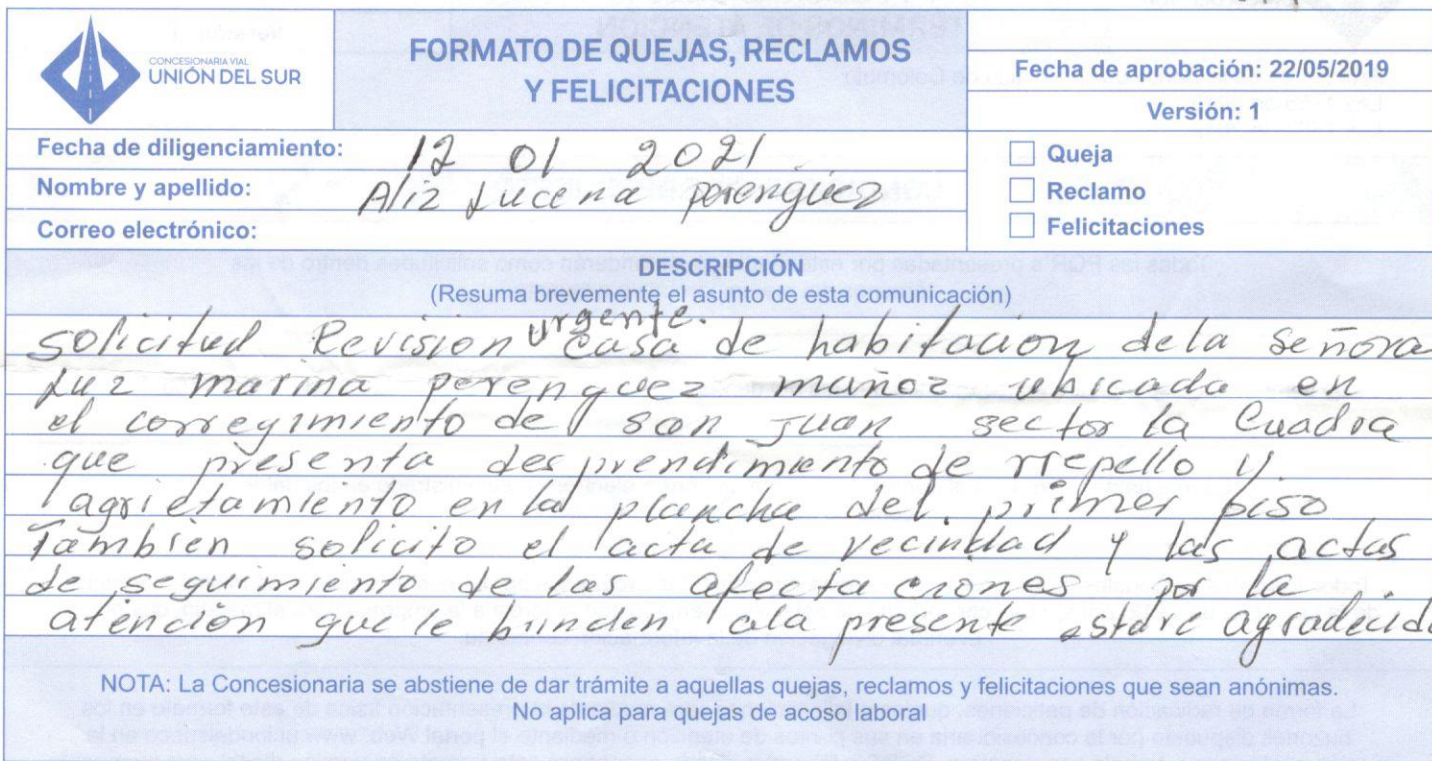 CONCESIONARIA VIAL
UNIÓN DEL SUR
FORMATO DE QUEJAS, RECLAMOS
Y FELICITACIONES
Fecha de aprobación: 22/05/2019
Versión: 1
Fecha de diligenciamiento: 12 01 2021
Nombre y apellido: Aliz Lucena perengüez
Correo electrónico:
Queja
Reclamo
Felicitaciones
DESCRIPCIÓN
(Resuma brevemente el asunto de esta comunicación)
solicitud Revision urgente. casa de habitacion dela señora
Luz marina perenguez muñoz ubicada en
el corregimiento de san Juan sector la Cuadra
que presenta desprendimiento de rrepello y
agrietamiento en la plancha del. primer piso
Tambien solicito el acta de vecindad y las actas
de seguimiento de las afectaciones por la
atención que le brinden ala presente estare agradecida
NOTA: La Concesionaria se abstiene de dar trámite a aquellas quejas, reclamos y felicitaciones que sean anónimas.
No aplica para quejas de acoso laboral